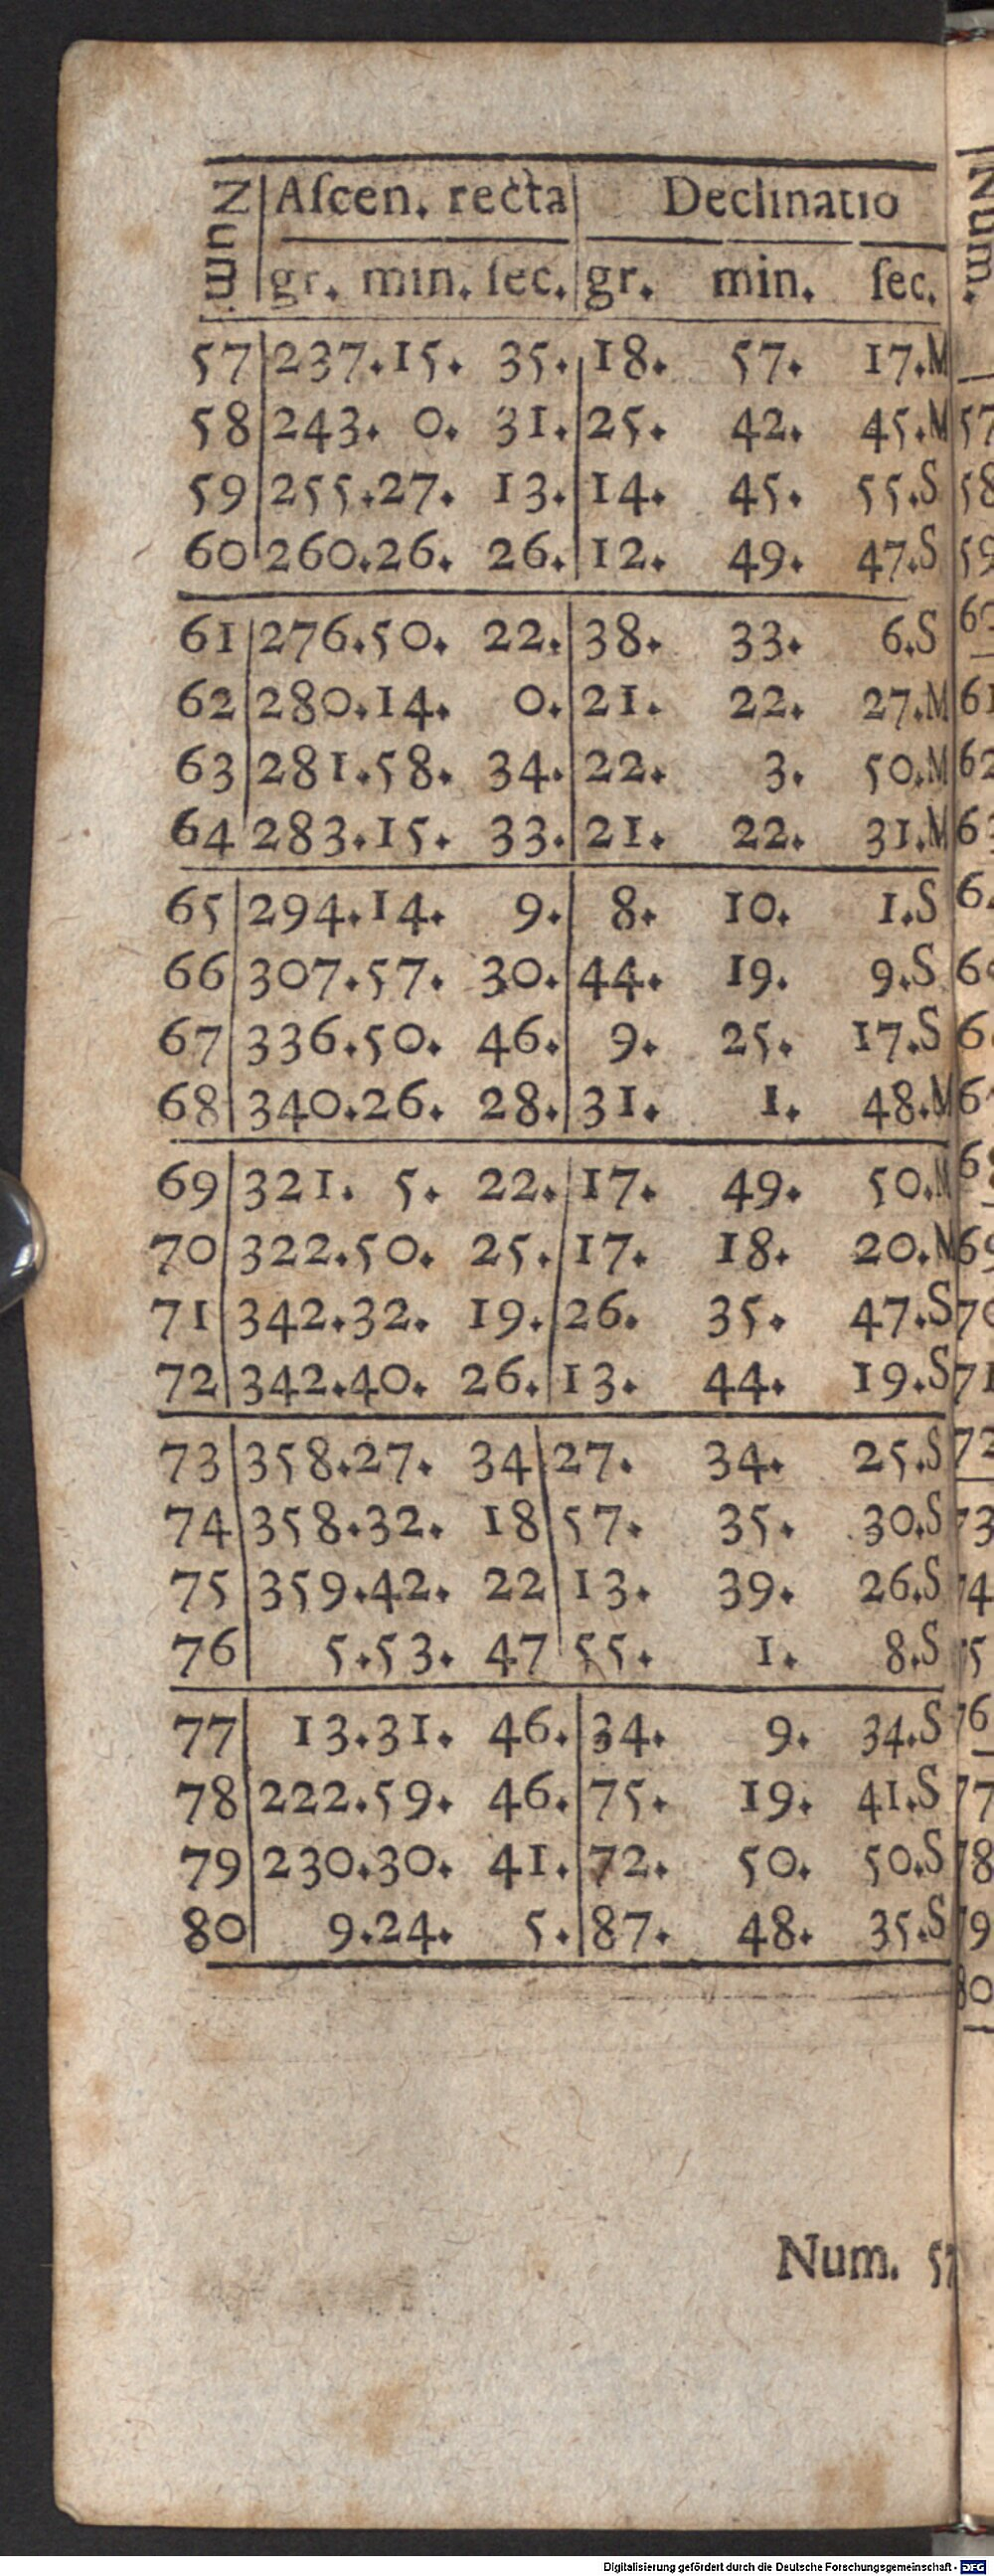 Num. Aſcen. recta Declinatio
gr. min. ſec. gr. min. ſec.
57 237. 15. 35. 18. 57. 17. M
58 243. 0. 31. 25. 42. 45. M
59 255. 27. 13. 14. 45. 55. S
60 260. 26. 26. 12. 49. 47. S
61 276. 50. 22. 38. 33. 6. S
62 280. 14. 0. 21. 22. 27. M
63 281. 58. 34. 22. 3. 50. M
64 283. 15. 33. 21. 22. 31. M
65 294. 14. 9. 8. 10. 1. S
66 307. 57. 30. 44. 19. 9. S
67 336. 50. 46. 9. 25. 17. S
68 340. 26. 28. 31. 1. 48. M
69 321. 5. 22. 17. 49. 50. M
70 322. 50. 25. 17. 18. 20. M
71 342. 32. 19. 26. 35. 47. S
72 342. 40. 26. 13. 44. 19. S
73 358. 27. 34 27. 34. 25. S
74 358. 32. 18 57. 35. 30. S
75 359. 42. 22 13. 39. 26. S
76 5. 53. 47 55. 1. 8. S
77 13. 31. 46. 34. 9. 34. S
78 222. 59. 46. 75. 19. 41. S
79 230. 30. 41. 72. 50. 50. S
80 9. 24. 5. 87. 48. 35. S
Num. 57
Num.
57
58
59
60
61
62
63
64
69
70
71
72
73
74
75
76
77
78
79
80
Digitalisierung gefördert durch die Deutsche Forschungsgemeinschaft - DFG